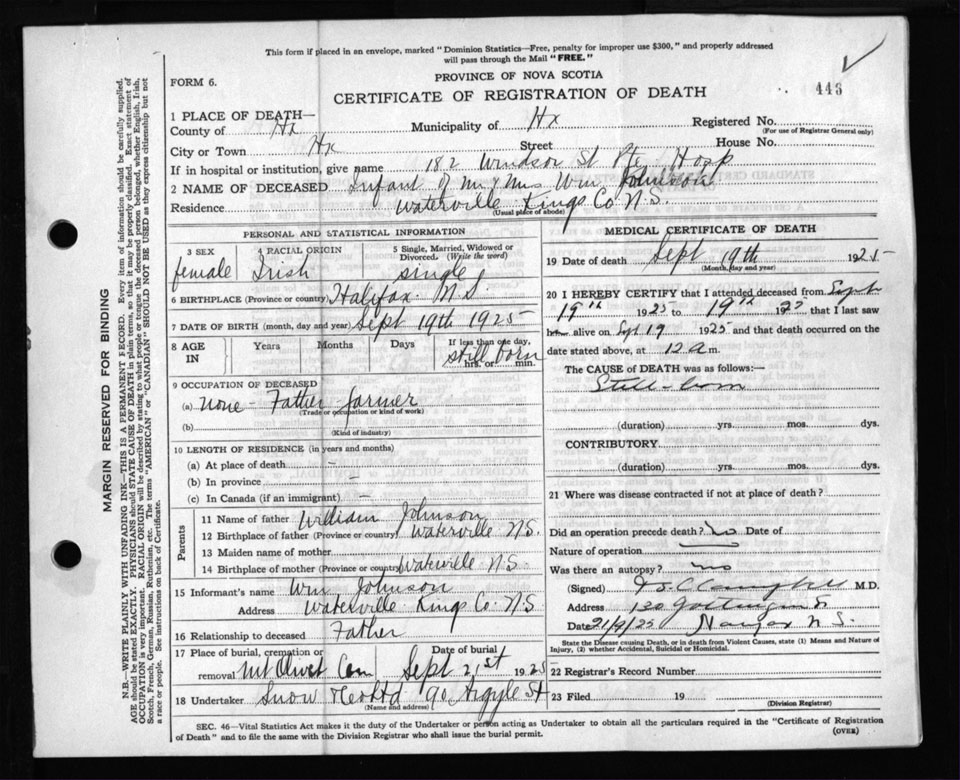 This form if placed in an envelope, marked "Dominion Statistics—Free, penalty for improper use $300," and properly addressed
will pass through the Mail "FREE."
FORM 6.
PROVINCE OF NOVA SCOTIA
443
CERTIFICATE OF REGISTRATION OF DEATH
1 PLACE OF DEATH—
County of Hx Municipality of Hx Registered No.
(For use of Registrar General only)
City or Town Hx Street House No.
If in hospital or institution, give name 182 Windsor St Pte Hosp
2 NAME OF DECEASED Infant of Mr & Mrs Wm Johnson
Residence Waterville Kings Co N.S.
(Usual place of abode)
PERSONAL AND STATISTICAL INFORMATION
3 SEX female
4 RACIAL ORIGIN Irish
5 Single, Married, Widowed or Divorced. (Write the word) single
6 BIRTHPLACE (Province or country) Halifax N.S.
7 DATE OF BIRTH (month, day and year) Sept 19th 1925
8 AGE IN Years Months Days If less than one day, still born hrs. or min.
9 OCCUPATION OF DECEASED
(a) none Father farmer
(Trade or occupation or kind of work)
(b)
(Kind of industry)
10 LENGTH OF RESIDENCE (in years and months)
(a) At place of death –
(b) In province –
(c) In Canada (if an immigrant) –
Parents
11 Name of father William Johnson
12 Birthplace of father (Province or country) Waterville N.S.
13 Maiden name of mother
14 Birthplace of mother (Province or country) Waterville N.S
15 Informant's name Wm Johnson
Address Waterville Kings Co. N.S
16 Relationship to deceased Father
17 Place of burial, cremation or removal Mt Olivet Cem Date of burial Sept 21st 1925
18 Undertaker Snow & Co Ltd 90 Argyle St
(Name and address)
MEDICAL CERTIFICATE OF DEATH
19 Date of death Sept 19th 1925
(Month, day and year)
20 I HEREBY CERTIFY that I attended deceased from Sept
19th 1925 to 19th 1925 that I last saw
alive on Sept 19 1925 and that death occurred on
date stated above, at 12 a m.
The CAUSE of DEATH was as follows:—
Still-born
(duration) yrs. mos. dys.
CONTRIBUTORY
(duration) yrs. mos. dys.
21 Where was disease contracted if not at place of death?
Did an operation precede death? no Date of
Nature of operation
Was there an autopsy? no
(Signed) Campbell M.D.
Address 130 Gottingen St
Date 21/9/25 Halifax N.S.
State the Disease causing Death, or in death from Violent Causes, state (1) Means and Nature of
Injury, (2) whether Accidental, Suicidal or Homicidal.
22 Registrar's Record Number
23 Filed 19
(Division Registrar)
SEC. 46—Vital Statistics Act makes it the duty of the Undertaker or person acting as Undertaker to obtain all the particulars required in the "Certificate of Registration
of Death" and to file the same with the Division Registrar who shall issue the burial permit.
(OVER)
MARGIN RESERVED FOR BINDING
N.B.—WRITE PLAINLY WITH UNFADING INK—THIS IS A PERMANENT RECORD. Every item of information should be carefully supplied.
AGE should be stated EXACTLY. PHYSICIANS should STATE CAUSE OF DEATH in plain terms, so that it may be properly classified. Exact statement of
OCCUPATION is very important. RACIAL ORIGIN will be described by stating to what people or tongue the deceased person belonged, whether English, Irish,
Scotch, French, German, Russian, Ruthenian, etc. The terms "AMERICAN" or "CANADIAN" SHOULD NOT BE USED as they express citizenship but not
a race or people. See instructions on back of Certificate.